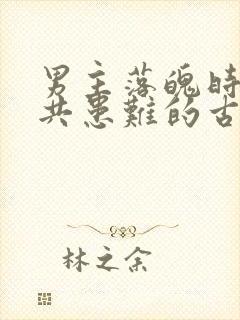 男主落魄时
共患难的古
林之余